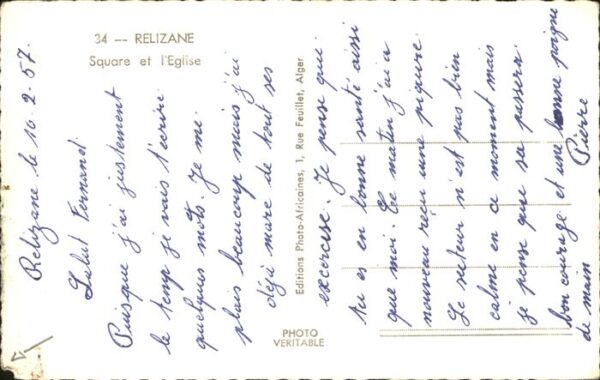 34 — RELIZANE
Square et l'Eglise
Relizane le 10.2.57.
Salut Fernand.
Puisque j'ai justement
le temp je vais t'écrire
quelques mots. Je mi
plais beaucoup mais j'ai
déjà mare de tout ses
Editions Photo-Africaines, 1, Rue Feuillet, Alger
PHOTO
VERITABLE
excercisse. Je pense qui
tu es en bonne santé aussi
que moi. Ce matin j'ai a
nouveau reçu une piqure.
Le seteur n'est pas bien
calme en ce moment mais
je pense que sa passera
bon courage et une bonne poigne
de main Pierre